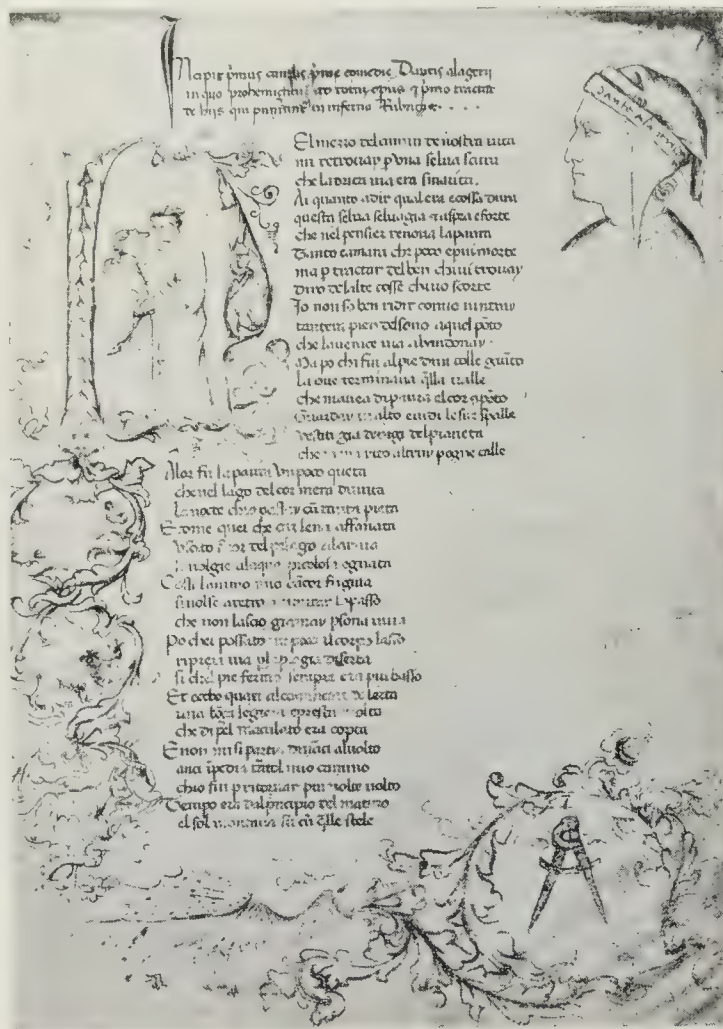 Ncipit primus cantus prime comedie Dantis alagerii
in quo prohemiçatur ad totum opus et primo tractat
de hiis qui puniuntur in inferno Rubrighe . . . .
Dante Ala
El mezzo del camin de nostra vita
mi retrovay p una selva scura
che la drita via era smarita.
Ai quanto a dir qual era e cossa dura
questa selva selvagia aspra e forte
che nel pensier renova la paura
Tanto e amara che poco e piu morte
ma p tractar del ben chivi trovay
diro de lalte cosse chivo scorte
Io non so ben ridir como intray
tantera pien del sono aquel poto
che la verace via abandonay
Ma po chi fui al pie dun colle guito
la ove terminava qlla valle
che mavea di paura el cor gpoto
Guarday in alto e vidi le sue spalle
vestiti gia de rigi del pianeta
che mena altruy pogne calle
Alor fu la paura un poco queta
che nel lago del cor mera
la nocte chio passay cu tanta pieta
E come quei che cu lena affanata
for del pelago ala riva
si volgie alaqua picolosa e guata
Cossi lanimo mio cacor fugiva
si volse a retro a rimirar lo passo
che non lascio giamay psona viva
Po chei possato un poco il corpo lasso
ripresi via p la piagia diserta
si chel pie fermo sempre era piu basso
Et ecco quasi al cominciar de lerta
una loza legiera e presta molto
che di pel maculato era copta
E non mi si partia dinaci al volto
anci ipediva tatel mio camino
chio fui p ritornar piu volte volto
Tempo era dal pricipio del matino
el sol montava su cu qlle stele